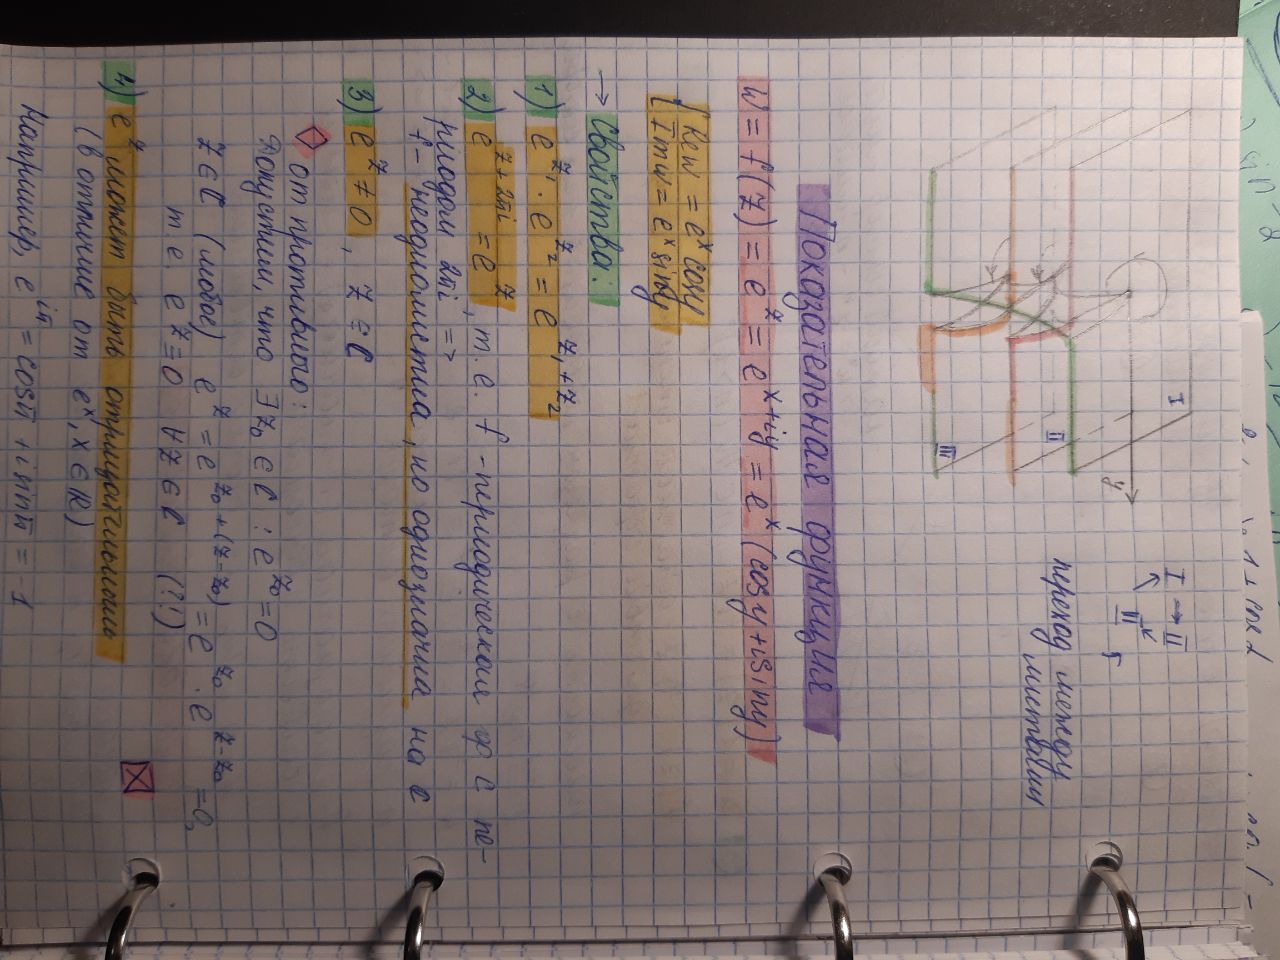 I
II
III
y
I → II
III
переход между
листами
Показательная функция
w = f(z) = e^z = e^{x+iy} = e^x (cosy + i siny)
{ Re w = e^x cosy
Im w = e^x siny
→ Свойства:
1) e^{z₁} · e^{z₂} = e^{z₁+z₂}
2) e^{z+2πi} = e^z, т.е. f - периодическая ф с пе-
риодом 2πi =>
f - неоднолистна, но однозначна на ℂ
3) e^z ≠ 0, z ∈ ℂ
от противного:
Допустим, что ∃ z₀ ∈ ℂ : e^{z₀} = 0
z ∈ ℂ (любое) e^z = e^{z₀+(z-z₀)} = e^{z₀} · e^{z-z₀} = 0,
т.е. e^z = 0 ∀z ∈ ℂ (?!)
4) e^z может быть отрицательным
(в отличие от e^x, x ∈ ℝ)
Например, e^{iπ} = cosπ + i sinπ = -1